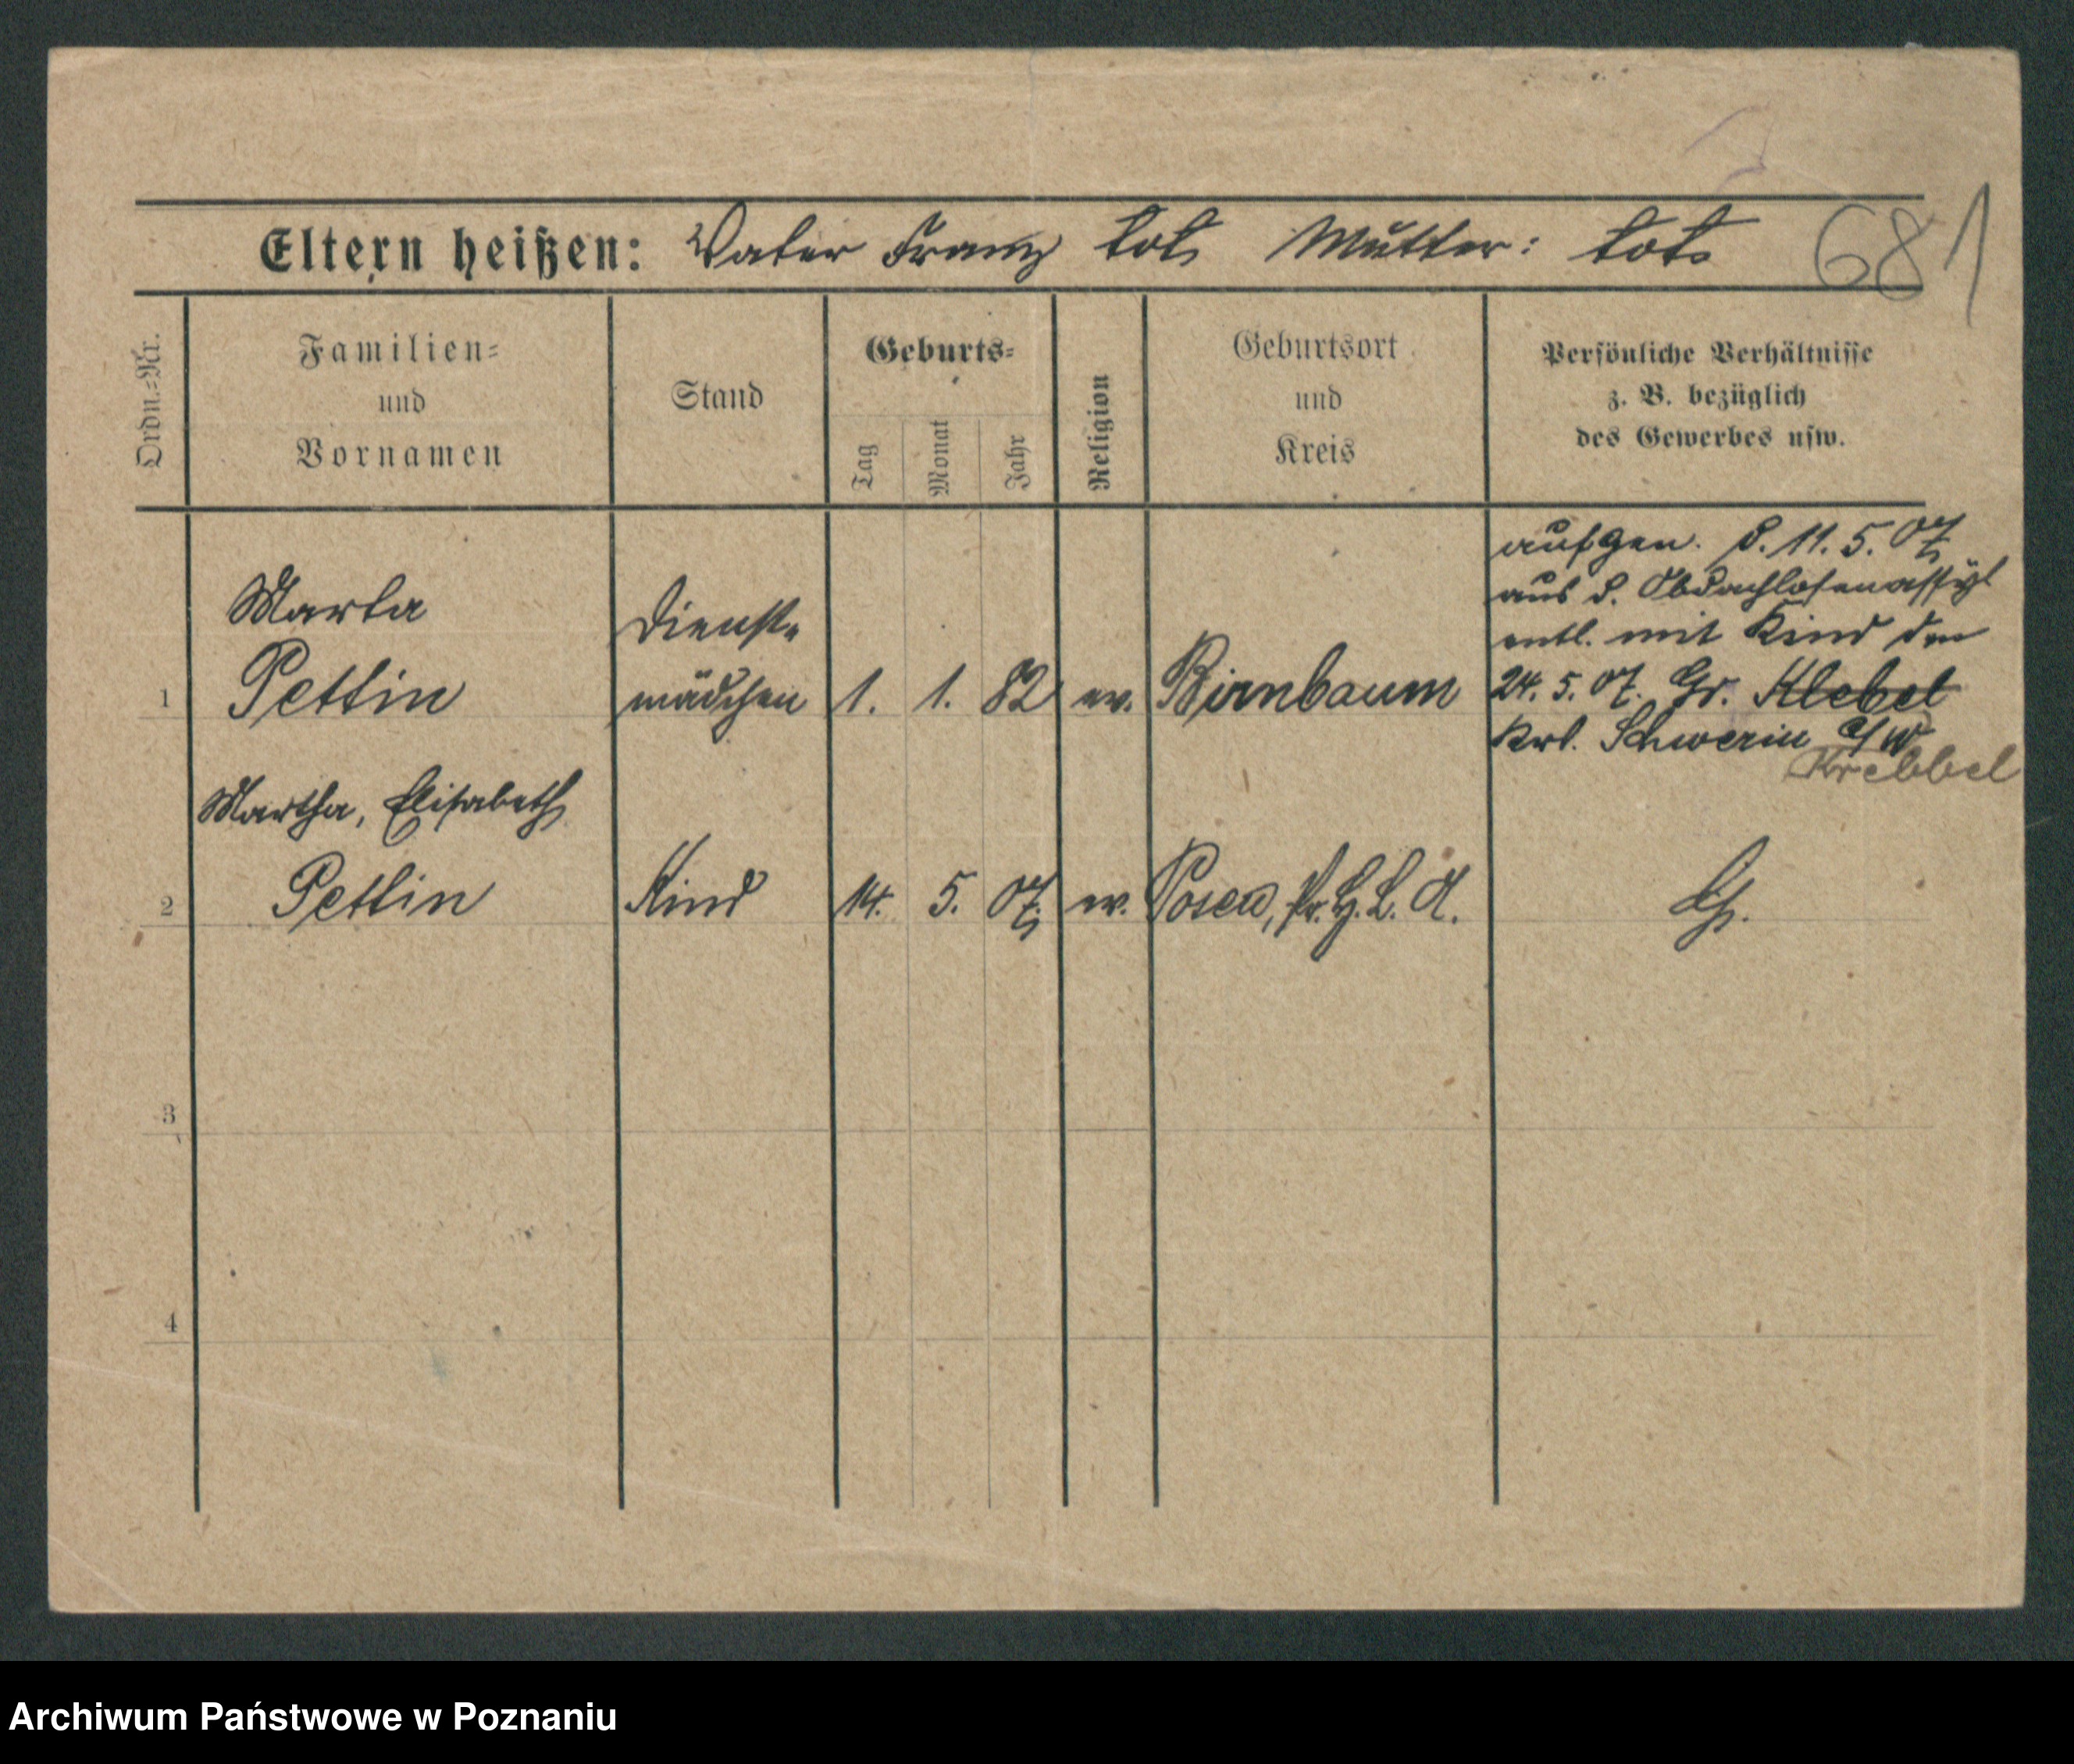 Eltern heißen: Vater Franz tot, Mutter: tot.
681
Ordn.=Nr.
Familien=
und
Vornamen
Stand
Geburts=
Tag
Monat
Jahr
Religion
Geburtsort
und
Kreis
Persönliche Verhältnisse
z. B. bezüglich
des Gewerbes usw.
1
Marta
Pettin
Dienst=
mädchen
1. 1. 82
ev.
Birnbaum
aufgen. d. 11. 5. 07
aus d. Obdachlosenassyl
entl. mit Kind den
24. 5. 07. Gr. Klebel
Krs. Schwerin a/W
Krebbel
2
Martha, Elisabeth
Pettin
Kind
14. 5. 07.
ev.
Posen, Pr. H. L. A.
3
4
Archiwum Państwowe w Poznaniu